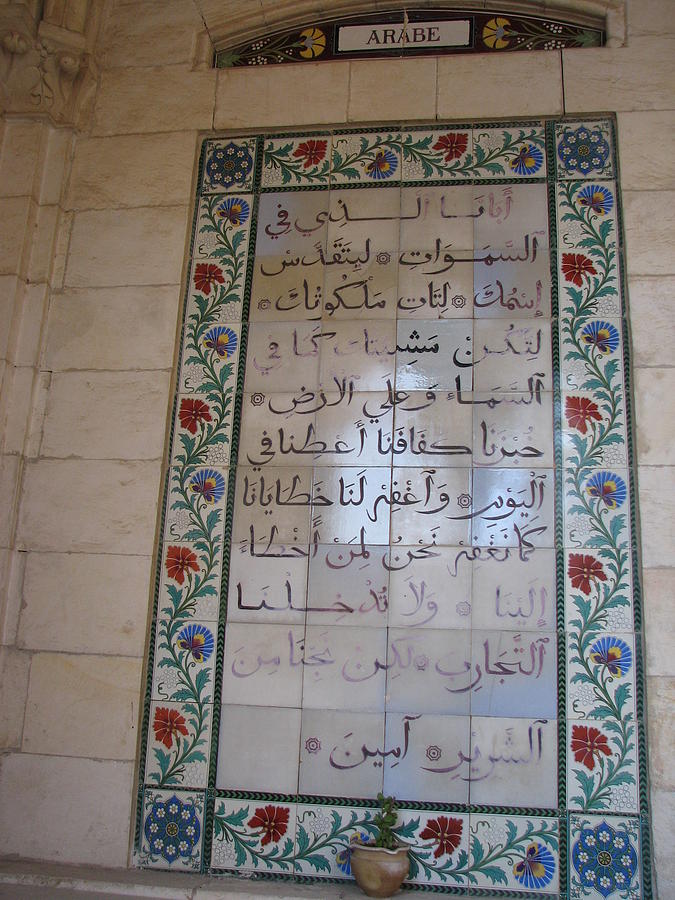 ARABE
أَبَانَا الَّذِي فِي
السَّمَوَاتِ لِيَتَقَدَّس
إِسْمُكَ لِتَاتِ مَلَكُوتُكَ
لِتَكُنْ مَشِيئَتُكَ كَمَا فِي
السَّمَاءِ وَعَلَي الأَرْضِ
خُبْزَنَا كَفَافَنَا أَعْطِنَا فِي
الْيَوْمِ وَاغْفِرْ لَنَا خَطَايَانَا
كَمَا نَغْفِرُ نَحْنُ لِمَنْ أَخْطَاءَ
إِلَيْنَا وَلَا تُدْخِلْنَا
التَّجَارِبِ لَكِنْ نَجِّنَا مِنَ
الشِّرِّيرِ آمِينَ